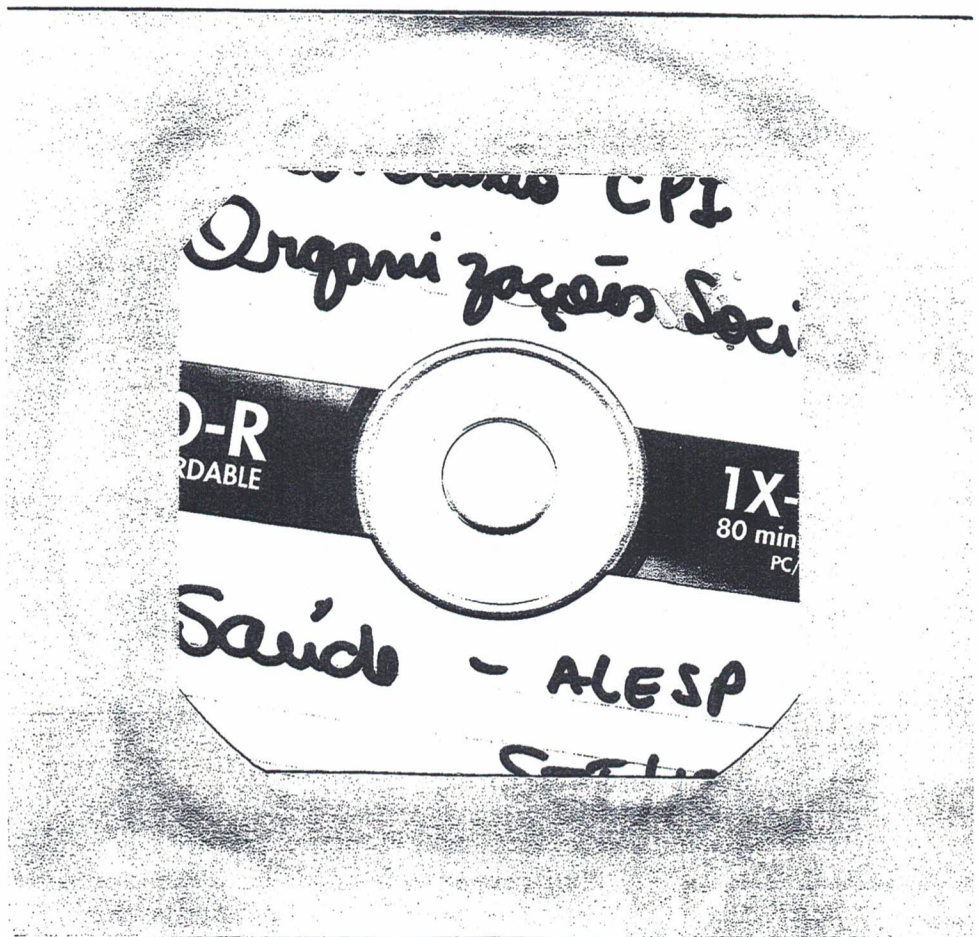 CPI
Organizações Soci
D-R
RDABLE
1X-
80 min
PC/
Saúde - ALESP